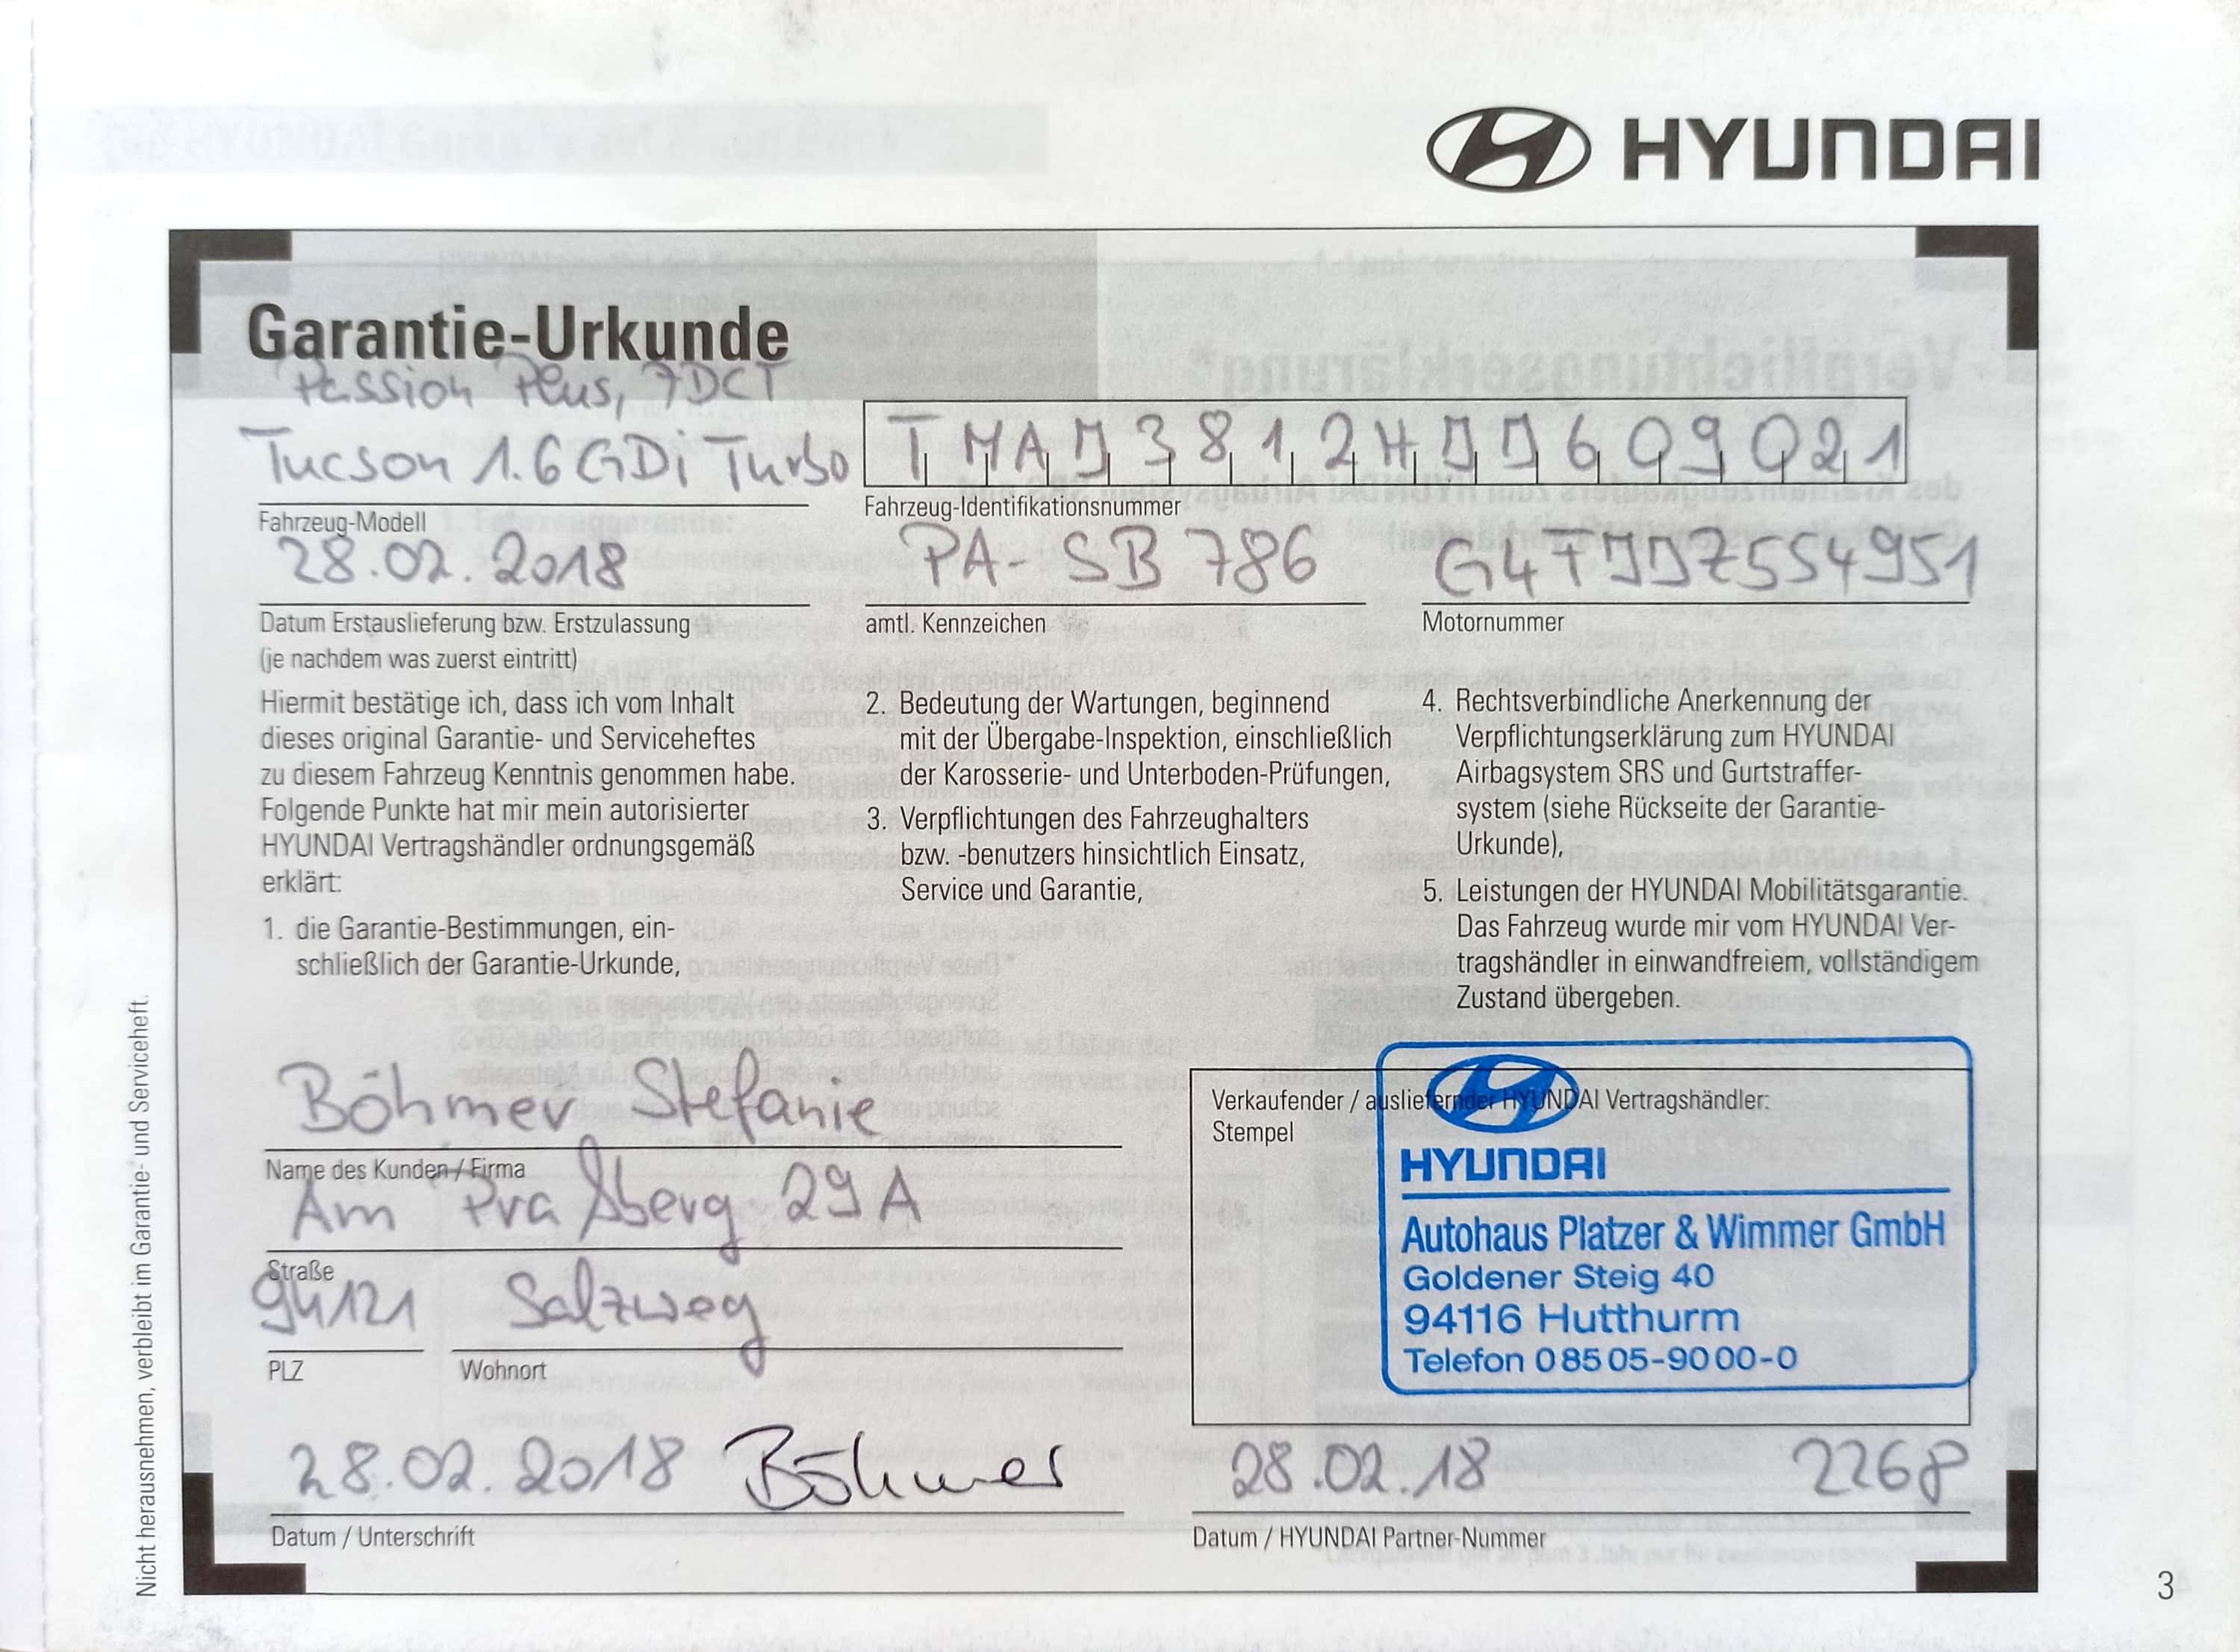 HYUNDAI
Garantie-Urkunde
Passion Plus, 7DCT
Tucson 1.6 GDi Turbo
TMAJ3812HJJ609021
Fahrzeug-Modell
Fahrzeug-Identifikationsnummer
28.02.2018
PA-SB 786
G4FJJZ554951
Datum Erstauslieferung bzw. Erstzulassung
(je nachdem was zuerst eintritt)
amtl. Kennzeichen
Motornummer
Hiermit bestätige ich, dass ich vom Inhalt
dieses original Garantie- und Serviceheftes
zu diesem Fahrzeug Kenntnis genommen habe.
Folgende Punkte hat mir mein autorisierter
HYUNDAI Vertragshändler ordnungsgemäß
erklärt:
1. die Garantie-Bestimmungen, ein-
schließlich der Garantie-Urkunde,
2. Bedeutung der Wartungen, beginnend
mit der Übergabe-Inspektion, einschließlich
der Karosserie- und Unterboden-Prüfungen,
3. Verpflichtungen des Fahrzeughalters
bzw. -benutzers hinsichtlich Einsatz,
Service und Garantie,
4. Rechtsverbindliche Anerkennung der
Verpflichtungserklärung zum HYUNDAI
Airbagsystem SRS und Gurtstraffer-
system (siehe Rückseite der Garantie-
Urkunde),
5. Leistungen der HYUNDAI Mobilitätsgarantie.
Das Fahrzeug wurde mir vom HYUNDAI Ver-
tragshändler in einwandfreiem, vollständigem
Zustand übergeben.
Böhmer Stefanie
Name des Kunden / Firma
Am Praßberg 29A
Straße
94121 Salzweg
PLZ
Wohnort
28.02.2018 Böhmer
Datum / Unterschrift
Verkaufender / ausliefernder HYUNDAI Vertragshändler:
Stempel
HYUNDAI
Autohaus Platzer & Wimmer GmbH
Goldener Steig 40
94116 Hutthurm
Telefon 0 85 05-90 00-0
28.02.18 2268
Datum / HYUNDAI Partner-Nummer
Nicht herausnehmen, verbleibt im Garantie- und Serviceheft.
3